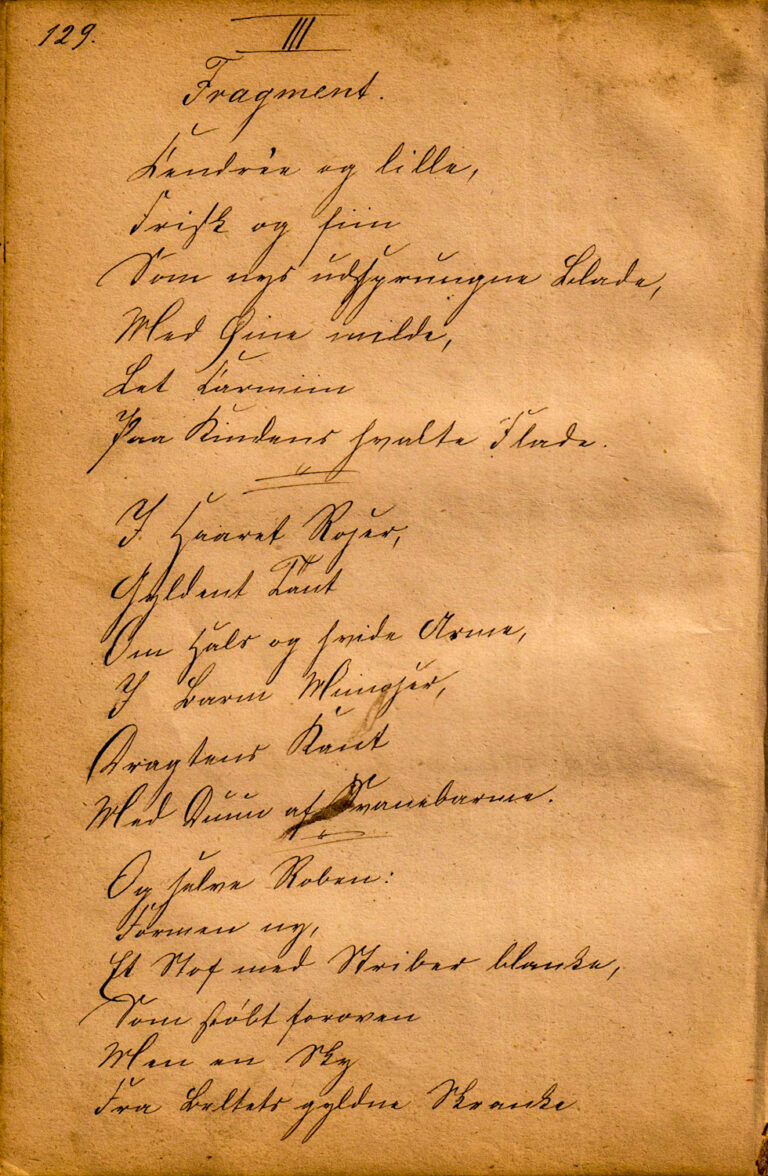 129.
III
Fragment.
Cendrée og lille,
Frisk og fiin
Som nys udsprungne Blade,
Med Øine milde,
Let Carmin
Paa Kindens hvalte Flade.
I Haaret Roser,
Gyldent Tant
Om Hals og hvide Arme,
I Barm Mimoser,
Dragtens Kant
Med Duun af Svanebarme.
Og selve Roben:
Formen ny,
Et Stof med Striber blanke,
Som støbt foroven
Men en Sky
Fra Beltets gyldne Skranke